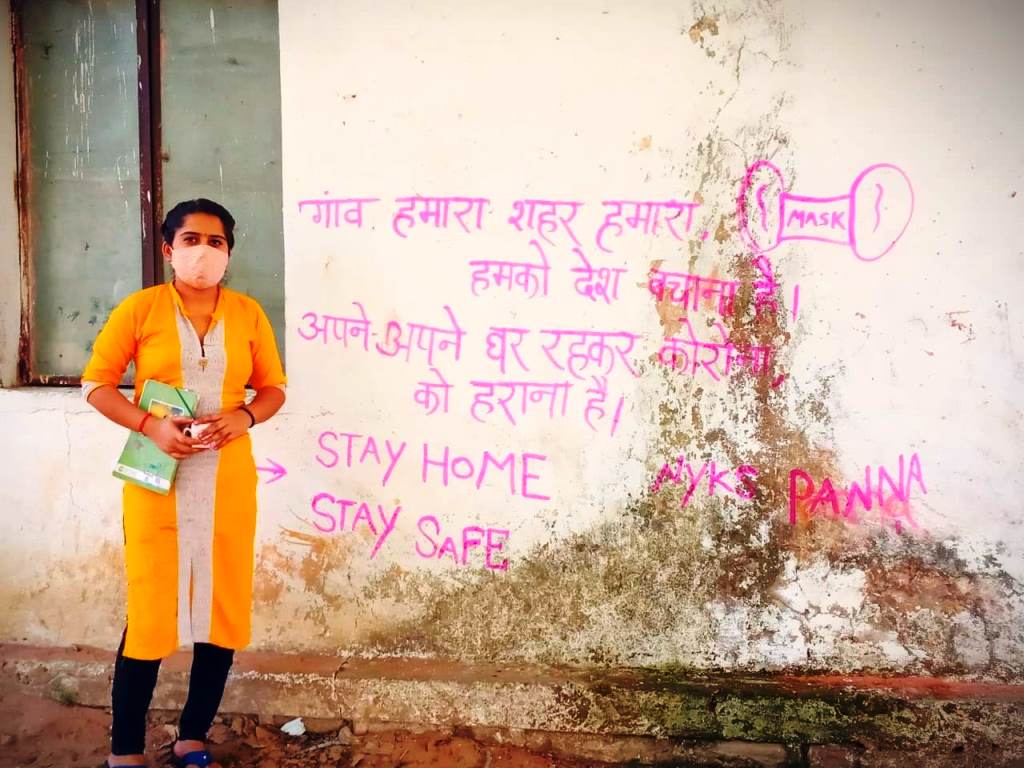 गांव हमारा शहर हमारा,
MASK
हमको देश बचाना है।
अपने-अपने घर रहकर कोरोना,
को हराना है।
STAY HOME
STAY SAFE
NYKS PANNA